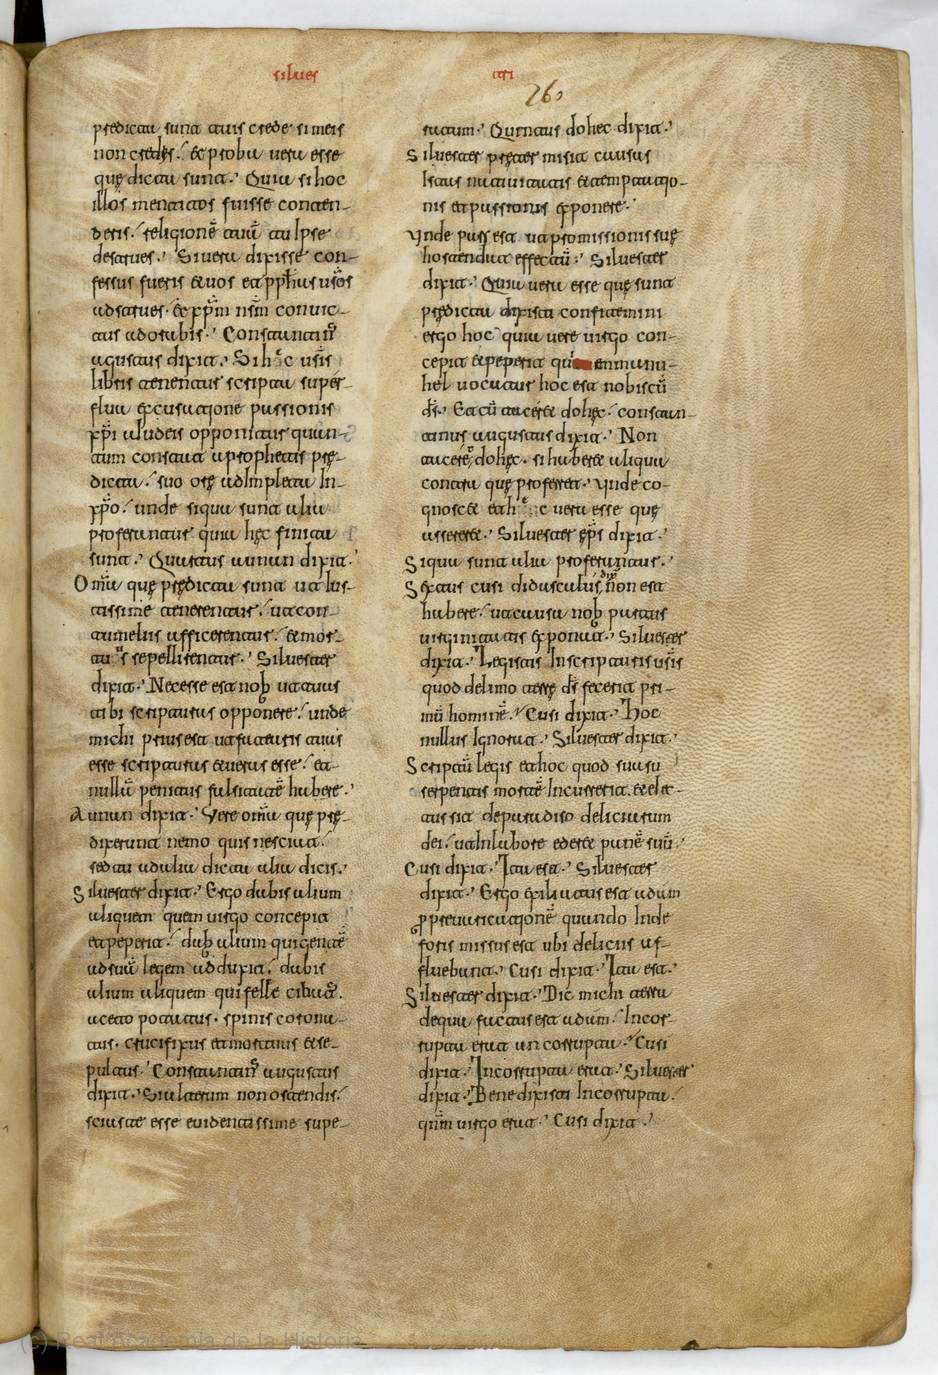 silues
tri
26
predicta sunt aut crede si meis
non credes. et proba uera esse
quę dicta sunt. Quia si hoc
illos mentitos fuisse conten-
deris. religionē tuā tu ipse
destrues. Si uera dixisse con-
fessus fueris et uos et ꝓph̄as ur̄os
adstrues. et xp̄m nr̄m conuic-
tus adorabis. Constantin9
agustus dixit. Si hoc ur̄is
libris tenentur scripta super-
flua excusatione passionis
xp̄i a Iudeis opponitur quan-
tum constat a prophetis prę-
dicta. suo ore ad Impleta In
xp̄o. unde si qua sunt alia
proferantur quia hęc finita
sunt.
Omīa quę prędicta sunt ita Ius-
tissime tenerentur. ut con-
tumelias afficerentur. et mor-
sepellirentur. Siluester
dixit. Necesse est nob ut
tibi scripturas opponere. unde
michi prius est ut fatearis
esse scripturas et ueras esse. et
nullū penitus falsitatē habere.
dixit. Vere omīa quę prę-
dixerunt nemo qui nesciat.
sed tu ad alia dicta alia dicis.
Siluester dixit. Ergo dabis alium
aliquem quem uirgo concepit
et peperit. dab alium qui gentē
ad suā legem adduxit. dabis
alium aliquem qui felle cibat9.
aceto potatus. spinis corona-
tus. crucifixus et mortuus et se-
pultus. Constantin9 augustus
dixit. Si alterum non ostendis.
sciat te esse euidentissime supe-
ratum. do hec dixit.
Siluester pręter misit cuius
Istius natiuitatis et temptatio-
nis et passionis exponere.
Vnde pass est ut promissioni suę
hostendat effectū. Siluester
dixit. Quia uera esse quę sunt
prędicta dixisti confitemini
ergo hoc quia uere uirgo con-
cepit et peperit qui emmanu-
hel uocatur hoc est nobiscū
ds̄. Et cū taceret dohęc. constan-
tinus augustus dixit. Non
taceret dohęc. si haberet aliqua
contra quę proferret. Vnde co-
gnoscit et uera esse quę
asseretet. Siluester ep̄s dixit.
Si qua sunt alia proferantur.
Sextus cusi didascalus non est
habere. ut causa nob partus
uirginitatis exponat. Siluester
dixit. Legistis In scripturis ur̄is
quod de limo terrę ds̄ fecerit pri-
mū hominē. Cusi dixit. Hoc
nullus Ignorat. Siluester dixit.
Scriptū legis et hoc quod suasu
serpentis mortē Incurrerit. et eiec-
tus sit de paradiso deliciarum
dei. ut In labore ederet panē suū.
Cusi dixit. Ita est. Siluester
dixit. Ergo exiliatus est adam
ꝓ preuaricationē quando Inde
foris missus est ubi delicias af-
fluebant. Cusi dixit. Ita est.
Siluester dixit. Dic michi terra
de qua factus est adam. Incor-
rupta erat an corrupta. Cusi
dixit. Incorrupta erat. Siluester
dixit. Bene dixisti Incorrupta.
qm̄ uirgo erat. Cusi dixit.
(c) Real Academia de la Historia